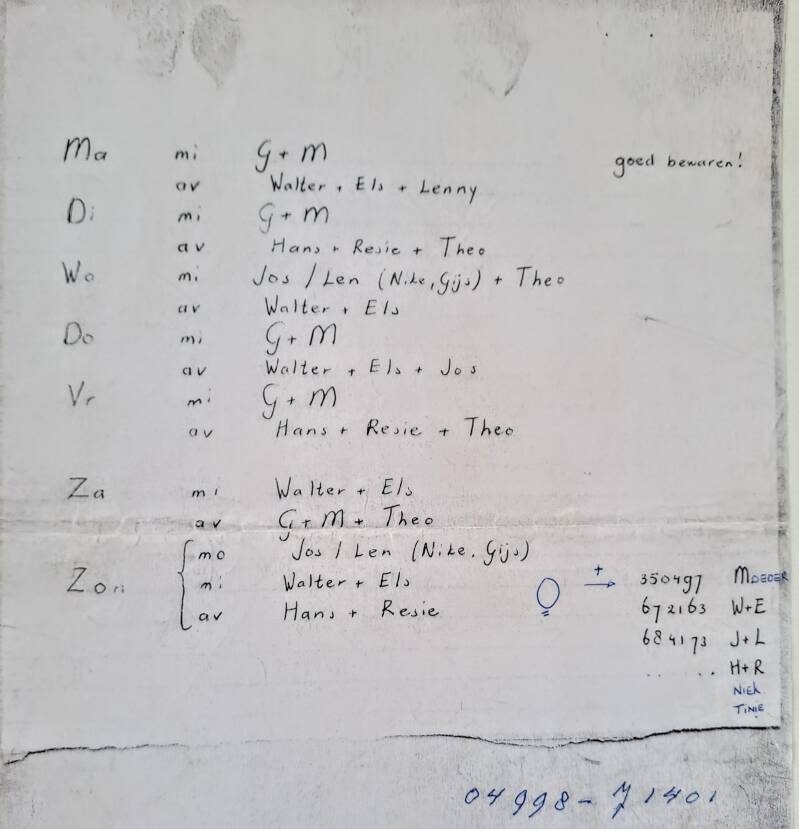 Ma mi G + M goed bewaren!
av Walter + Els + Lenny
Di mi G + M
av Hans + Resie + Theo
Wo mi Jos / Len (Nike, Gijs) + Theo
av Walter + Els
Do mi G + M
av Walter + Els + Jos
Vr mi G + M
av Hans + Resie + Theo
Za mi Walter + Els
av G + M + Theo
mo Jos / Len (Nike, Gijs)
Zon mi Walter + Els + → 350497 MOEDER
av Hans + Resie 672163 W+E
684173 J+L
....... H+R
NIEK
TINIE
04998-71401